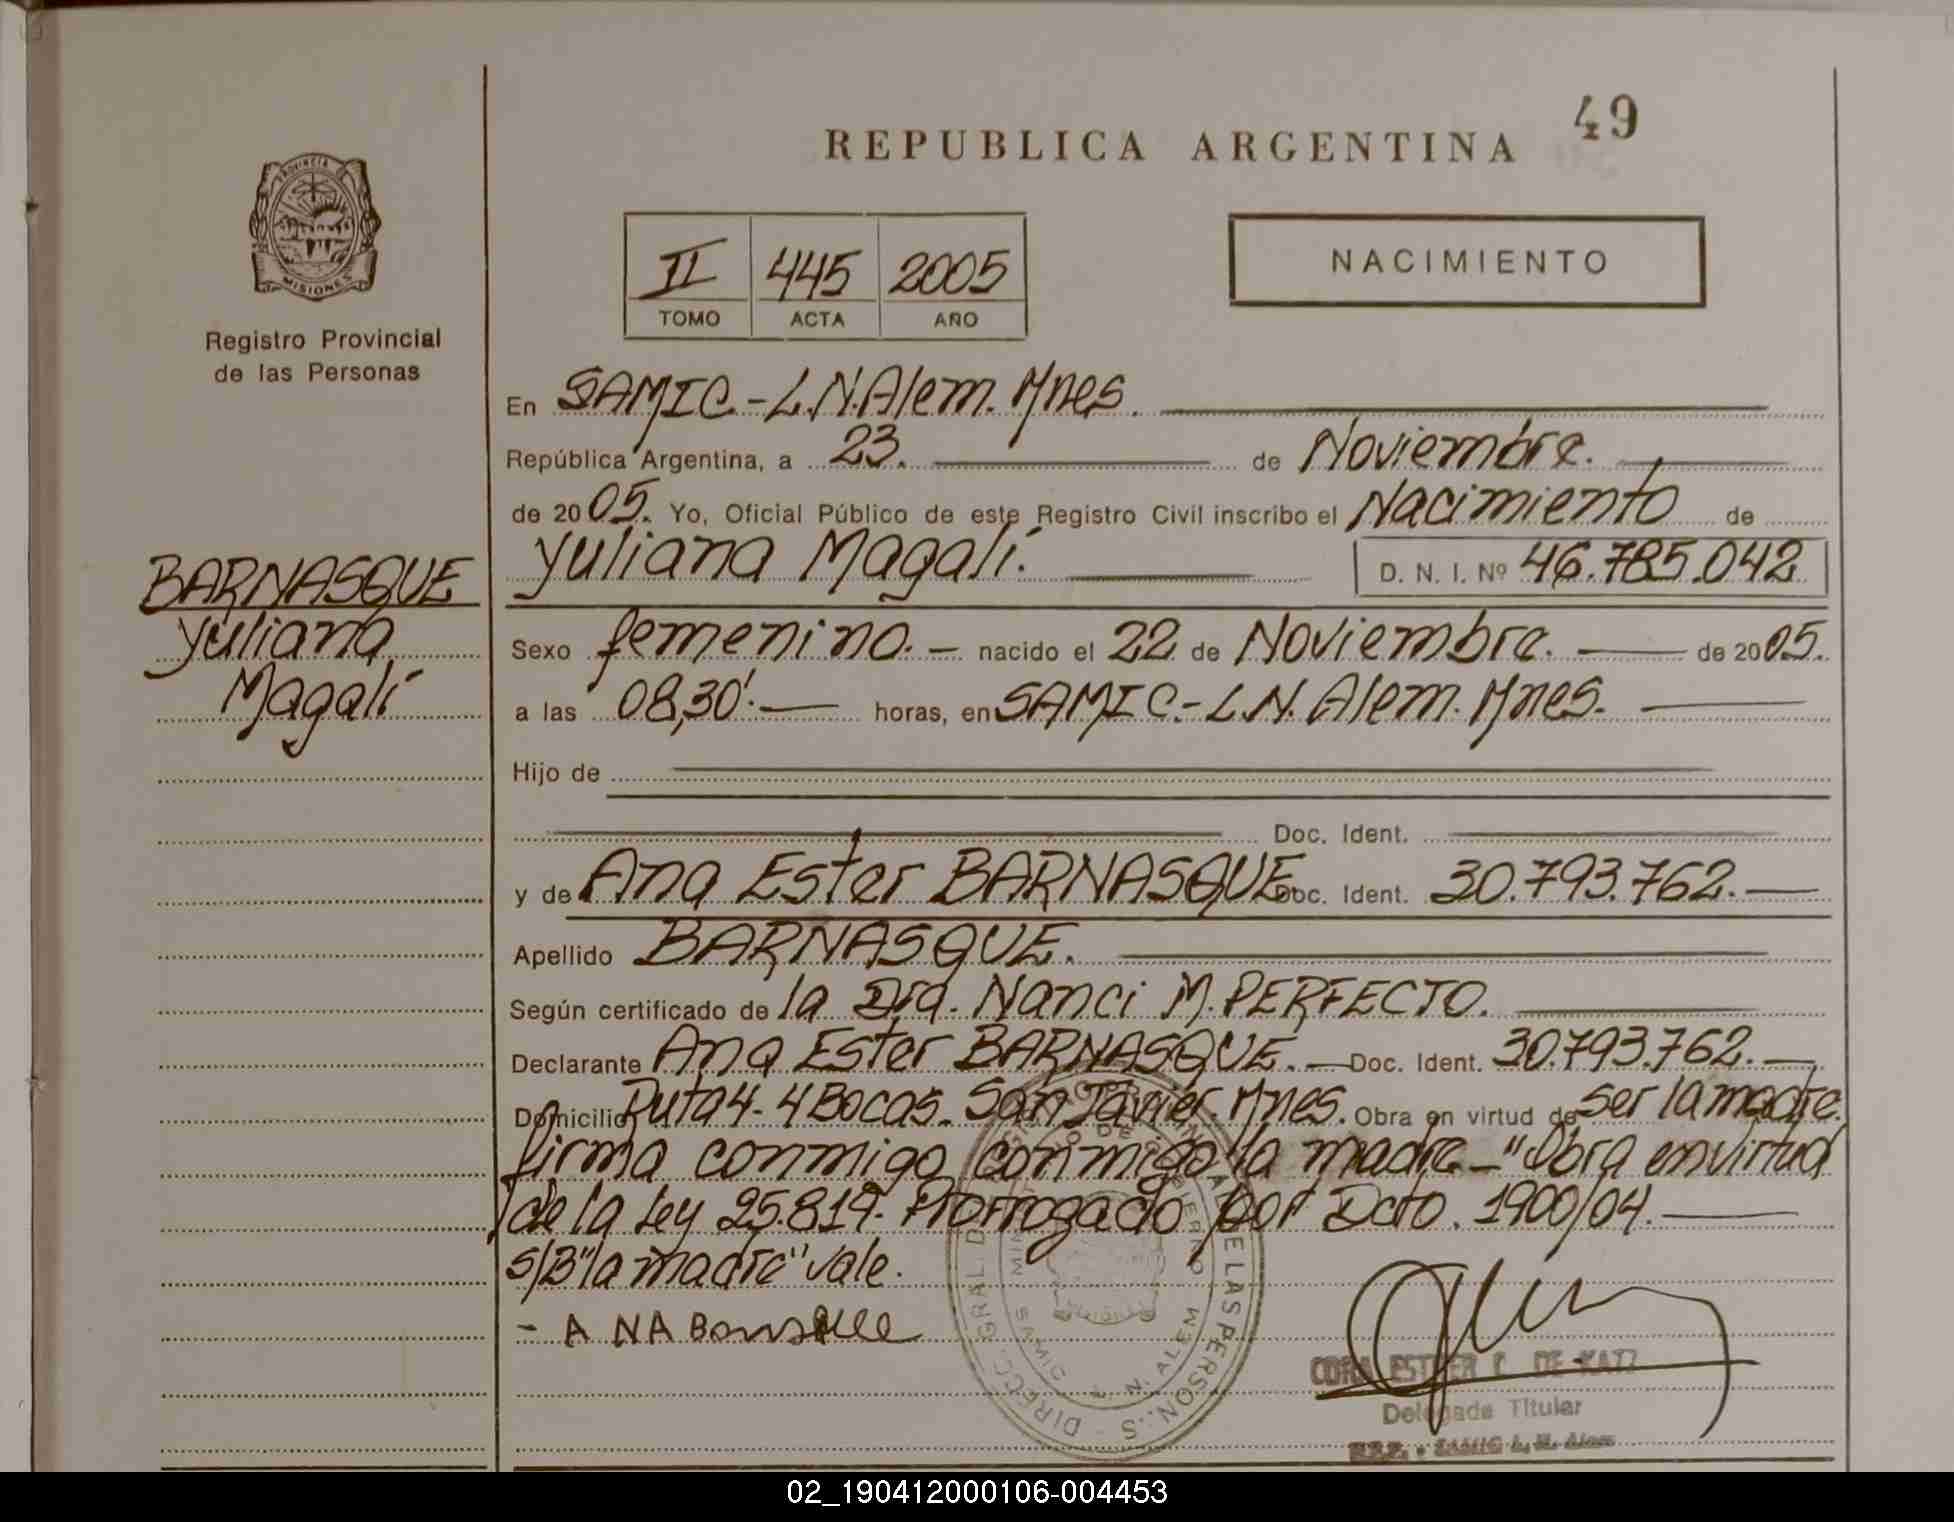 49
REPUBLICA ARGENTINA
PROVINCIA DE
MISIONES
Registro Provincial
de las Personas
II 445 2005
TOMO ACTA AÑO
NACIMIENTO
En SAMIC.-L.N.Alem. Mnes.
República Argentina, a 23. de Noviembre.
de 2005. Yo, Oficial Público de este Registro Civil inscribo el Nacimiento de
Yuliana Magalí. D. N. I. Nº 46.785.042
BARNASQUE
Yuliana
Magalí
Sexo femenino.- nacido el 22 de Noviembre. de 2005.
a las 08,30'.- horas, en SAMIC.-L.N. Alem. Mnes.-
Hijo de
Doc. Ident.
y de Ana Ester BARNASQUE Doc. Ident. 30.793.762.-
Apellido BARNASQUE.
Según certificado de la Dra. Nanci M. PERFECTO.
Declarante Ana Ester BARNASQUE.- Doc. Ident. 30.793.762.-
Domicilio Ruta 4- 4 Bocas. San Javier. Mnes. Obra en virtud de ser la madre.
firma conmigo conmigo la madre.-"Obra en virtud
de la Ley 25.819. Prorrogado por Dcto. 1900/04.-
S/B "la madre" vale.
- ANA
DIRECC. GRAL. DE LAS PERSON.S
SAMIC L. N. ALEM
CORA ESTHER DE KATZ
Delegada Titular
R.P.P. - SAMIC L. N. Alem
02_190412000106-004453